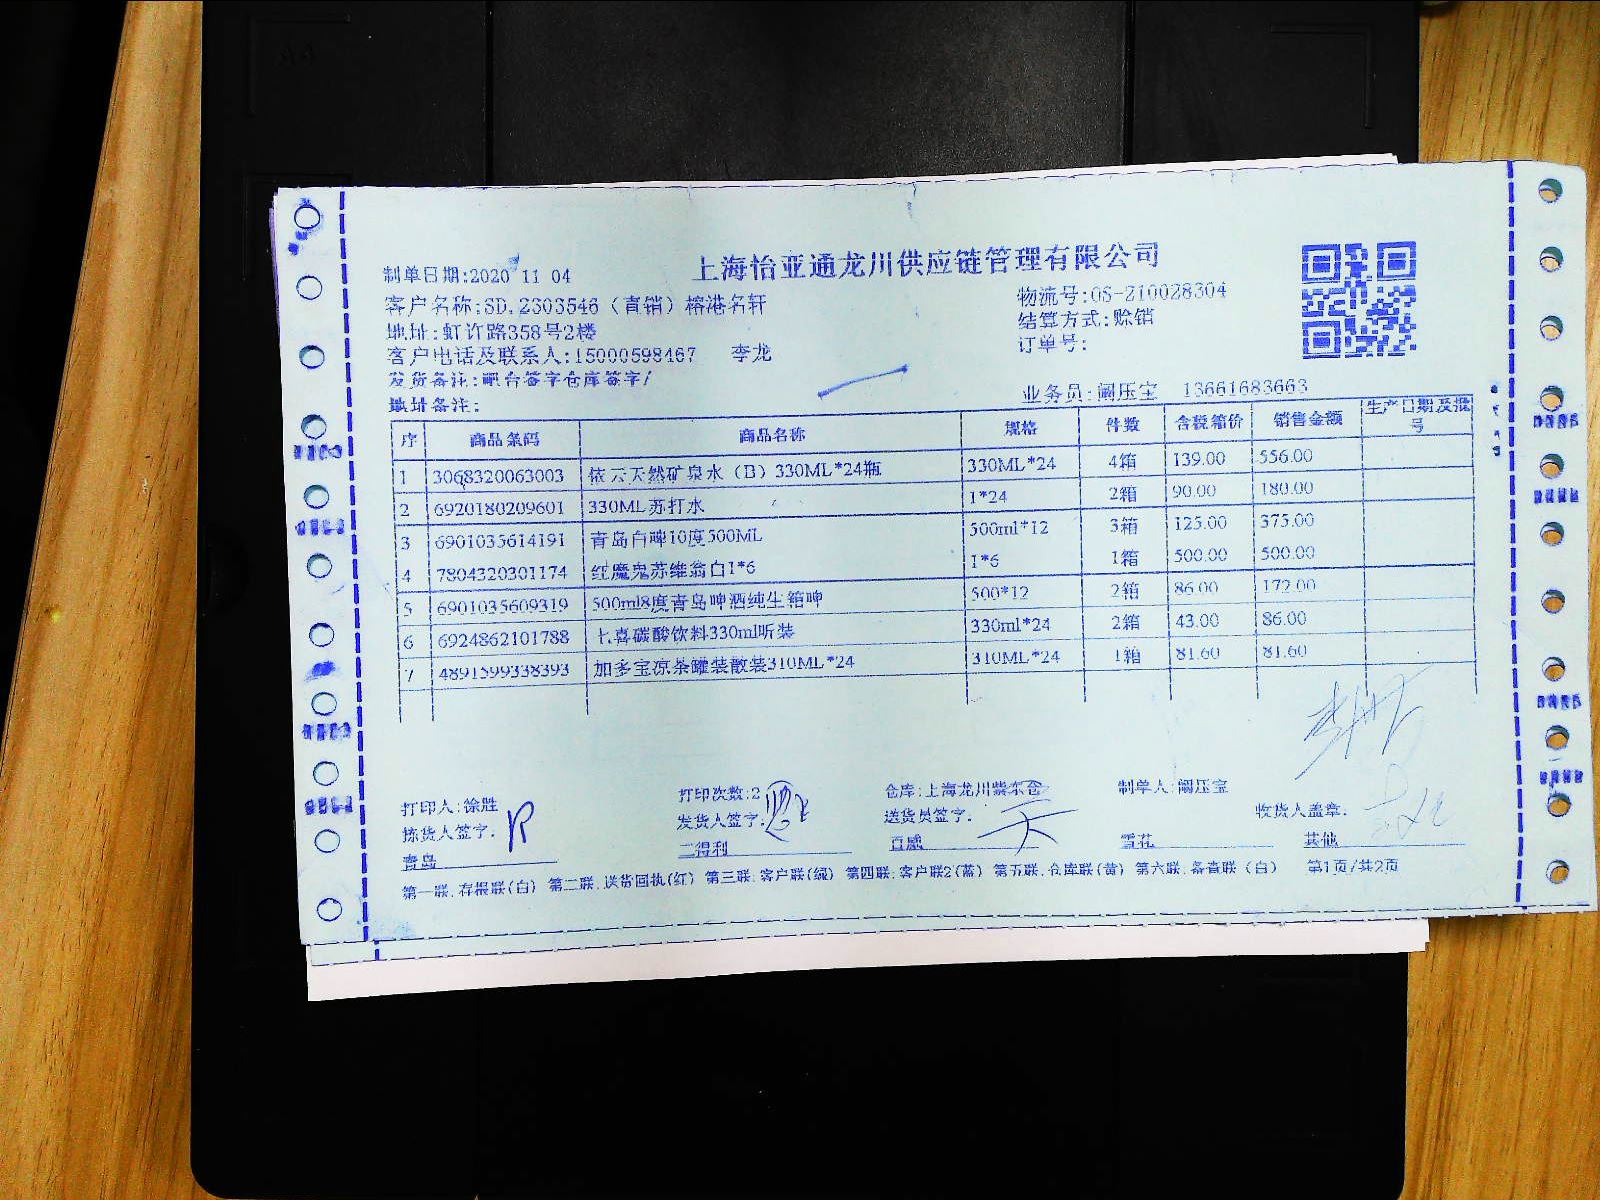 上海怡亚通龙川供应链管理有限公司
制单日期:2020 11 04
客户名称:SD.2303546（直销）榕港名轩
物流号:0S-210028304
地址:虹许路358号2楼
结算方式:赊销
客户电话及联系人:15000598467 李龙
订单号:
发货备注:吧台签字仓库签字/
业务员:阚压宝 13661683663
地址备注:
序 商品条码 商品名称 规格 件数 含税箱价 销售金额 生产日期及批号
1 3068320063003 依云天然矿泉水（B）330ML*24瓶 330ML*24 4箱 139.00 556.00
2 6920180209601 330ML苏打水 1*24 2箱 90.00 180.00
3 6901035614191 青岛白啤10度500ML 500ml*12 3箱 125.00 375.00
4 7804320301174 红魔鬼苏维翁白1*6 1*6 1箱 500.00 500.00
5 6901035609319 500ml8度青岛啤酒纯生箱啤 500*12 2箱 86.00 172.00
6 6924862101788 七喜碳酸饮料330ml听装 330ml*24 2箱 43.00 86.00
7 4891599338393 加多宝凉茶罐装散装310ML*24 310ML*24 1箱 81.60 81.60
打印人:徐胜 打印次数:2 仓库:上海龙川紫东仓 制单人:阚压宝
拣货人签字: 发货人签字: 送货员签字: 收货人盖章:
青岛 三得利 百威 雪花 其他
第一联:存根联(白) 第二联:送货回执(红) 第三联:客户联(绿) 第四联:客户联2(蓝) 第五联:仓库联(黄) 第六联:备查联(白) 第1页/共2页